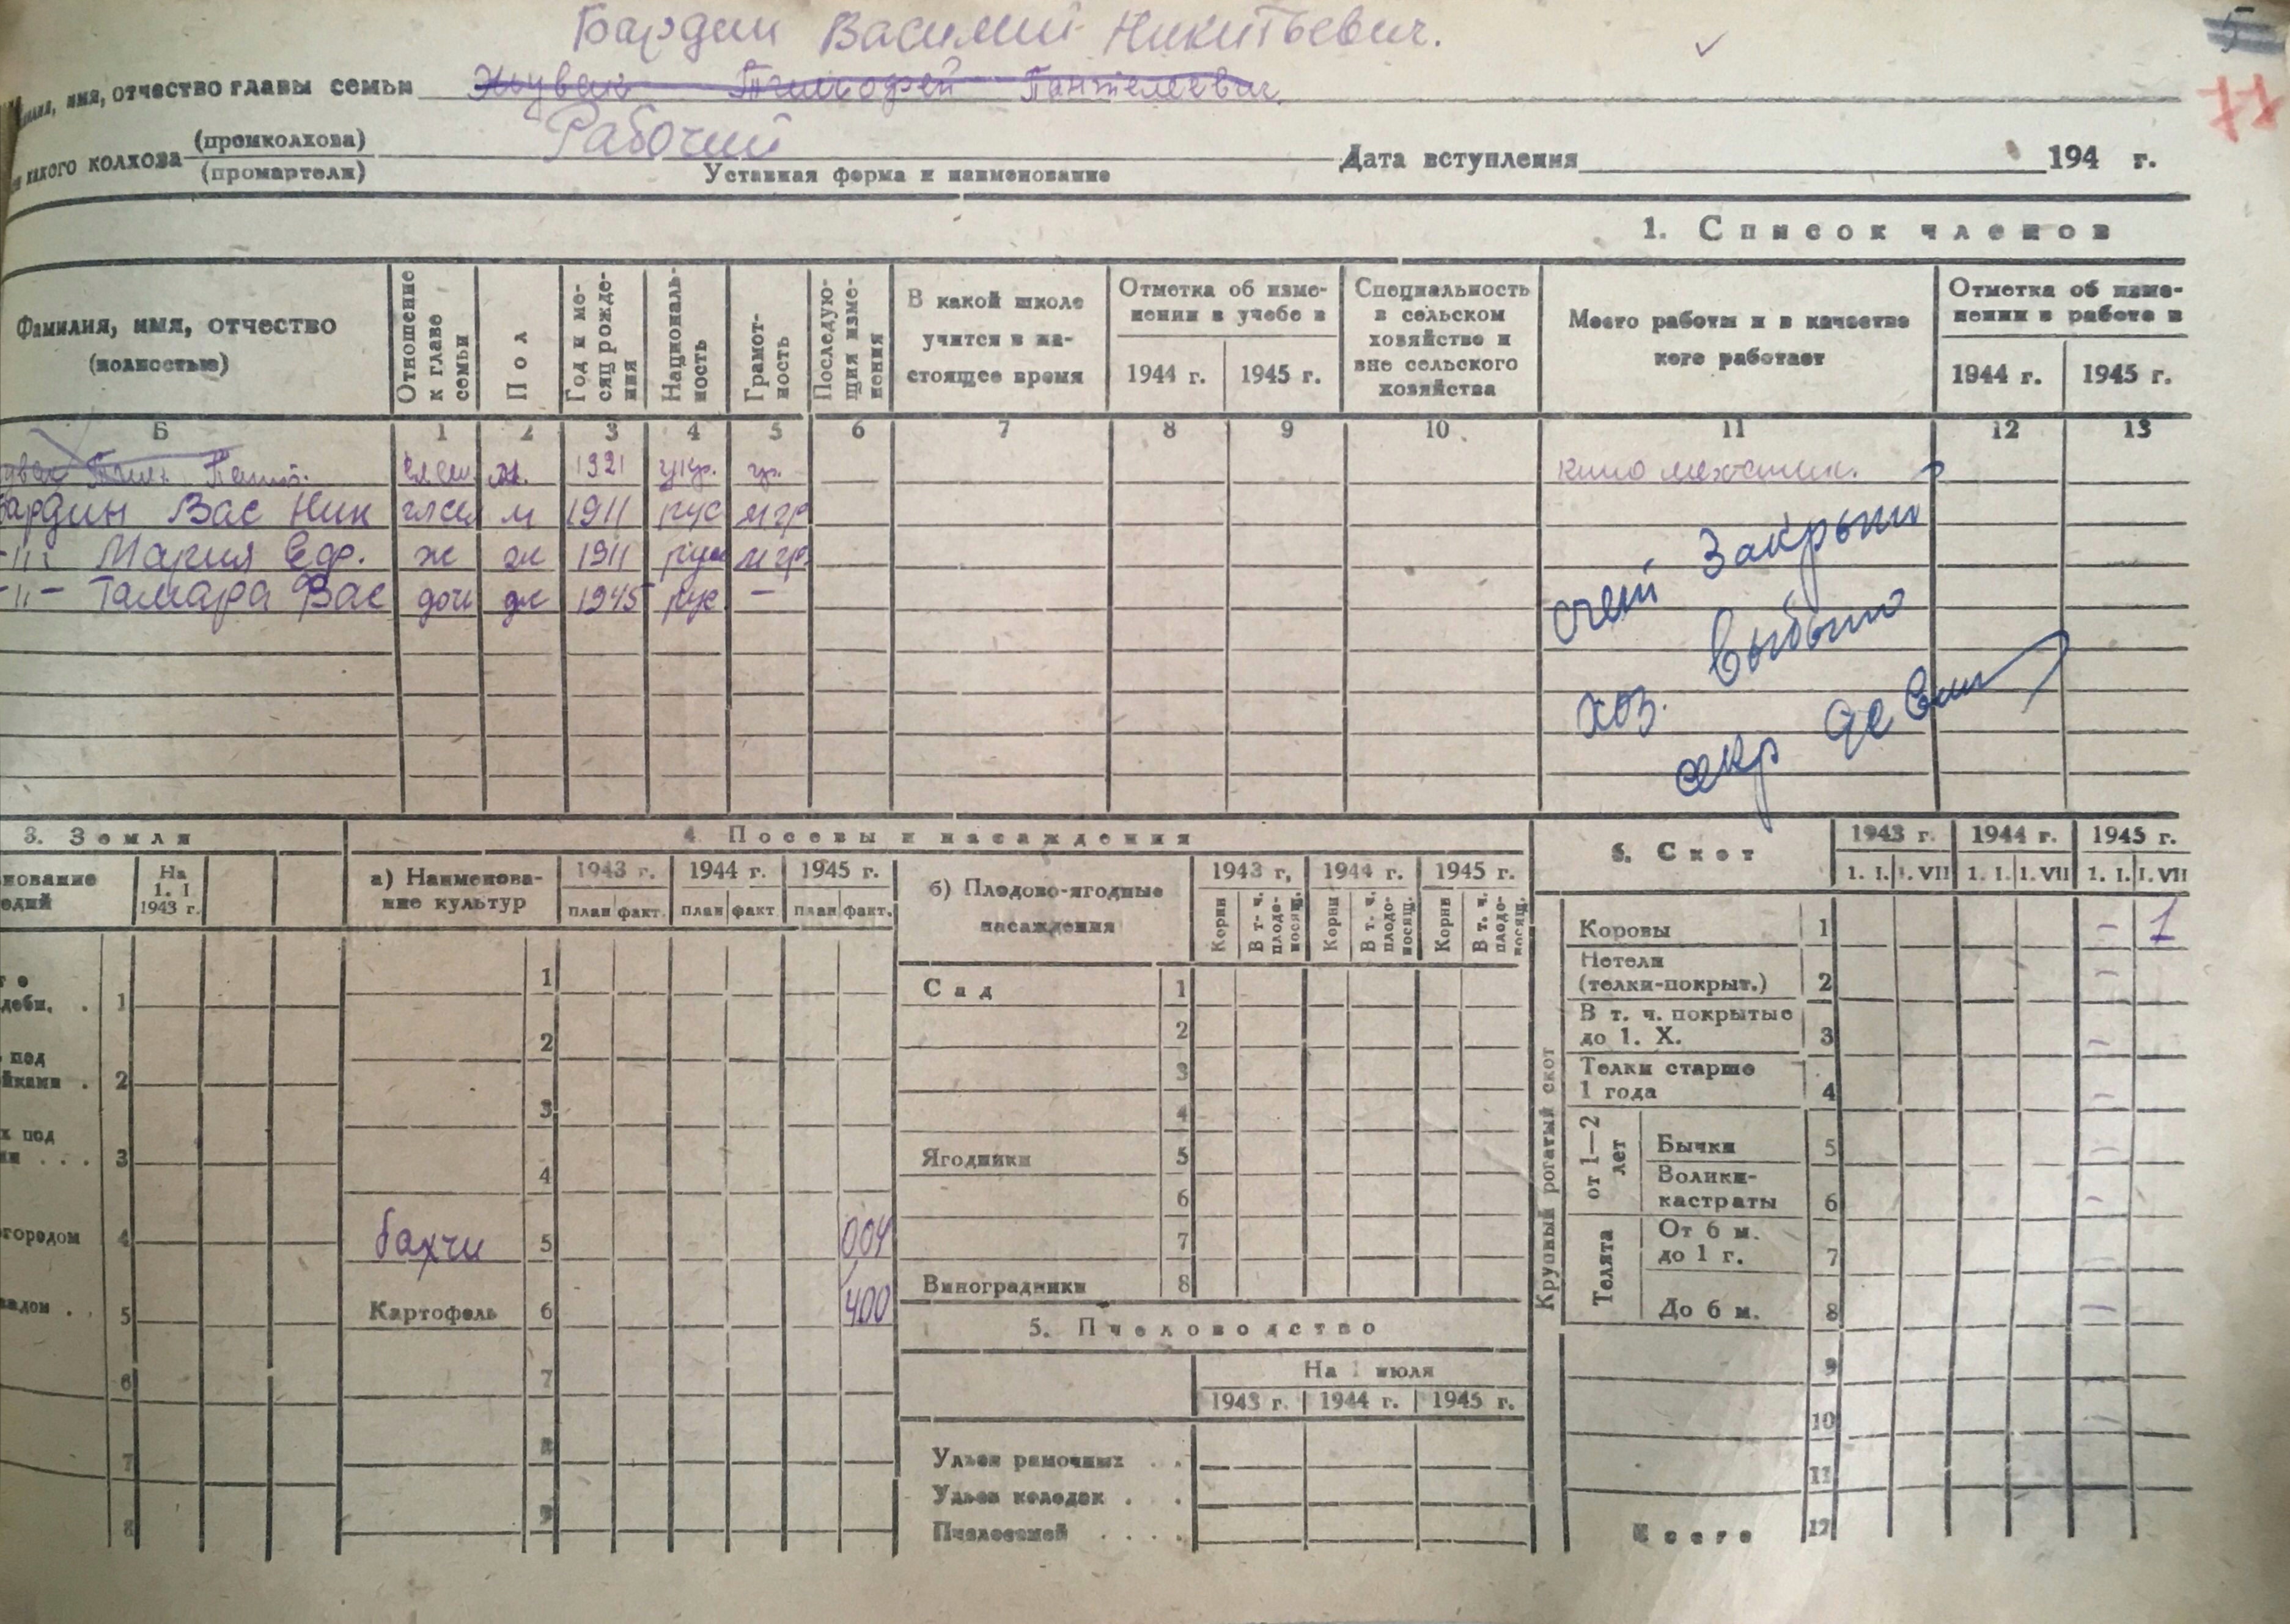 Бардин Василий Никитьевич.
5
имя, отчество главы семьи Тимофей Пантелеевич.
77
какого колхоза (промколхоза) Рабочий Дата вступления 194 г.
(промартели) Уставная форма и наименование
1. Список членов
Фамилия, имя, отчество (полностью)
Отношение к главе семьи
Пол
Год и месяц рождения
Националь-ность
Грамот-ность
Последую-щия изме-нения
В какой школе учится в на-стоящее время
Отметка об изме-нении в учебе в
1944 г. 1945 г.
Специальность в сельском хозяйстве и вне сельского хозяйства
Место работы и в качестве кого работает
Отметка об изме-нении в работе в
1944 г. 1945 г.
Б 1 2 3 4 5 6 7 8 9 10 11 12 13
м. 1921 укр. гр. кино механик.
Бардин Вас Ник м 1911 рус мгр
-//- Мария Ефр. ж ж 1911 рус мгр
-//- Тамара Вас доч ж 1945 рус —
счет Закрыт
выбыло
хоз.
секр
3. Земля
На 1. I. 1943 г.
1
под 2
под 3
огородом 4
5
6
7
8
4. Посевы и насаждения
а) Наименова-ние культур
1943 г. 1944 г. 1945 г.
План факт. План факт План факт.
1
2
3
4
бахчи 5 004
Картофель 6 400
7
8
9
б) Плодово-ягодные насаждения
1943 г. 1944 г. 1945 г.
Корни В т. ч. плодо-носящ. Корни В т. ч. плодо-носящ. Корни В т. ч. плодо-носящ.
Сад 1
2
3
4
Ягодники 5
6
7
Виноградники 8
5. Пчеловодство
На 1 июля
1943 г. 1944 г. 1945 г.
Ульев рамочных . .
Ульев колодок . .
Пчелосемей . . . .
6. Скот
1943 г. 1944 г. 1945 г.
1. I. 1. VII 1. I. 1. VII 1. I. 1. VII
Крупный рогатый скот
Коровы 1 – 1
Нетели (телки-покрыт.) 2 –
В т. ч. покрытые до 1. X. 3 –
Телки старше 1 года 4 –
от 1—2 лет
Бычки 5 –
Волики-кастраты 6 –
Телята
От 6 м. до 1 г. 7 –
До 6 м. 8 –
9
10
11
Всего 12